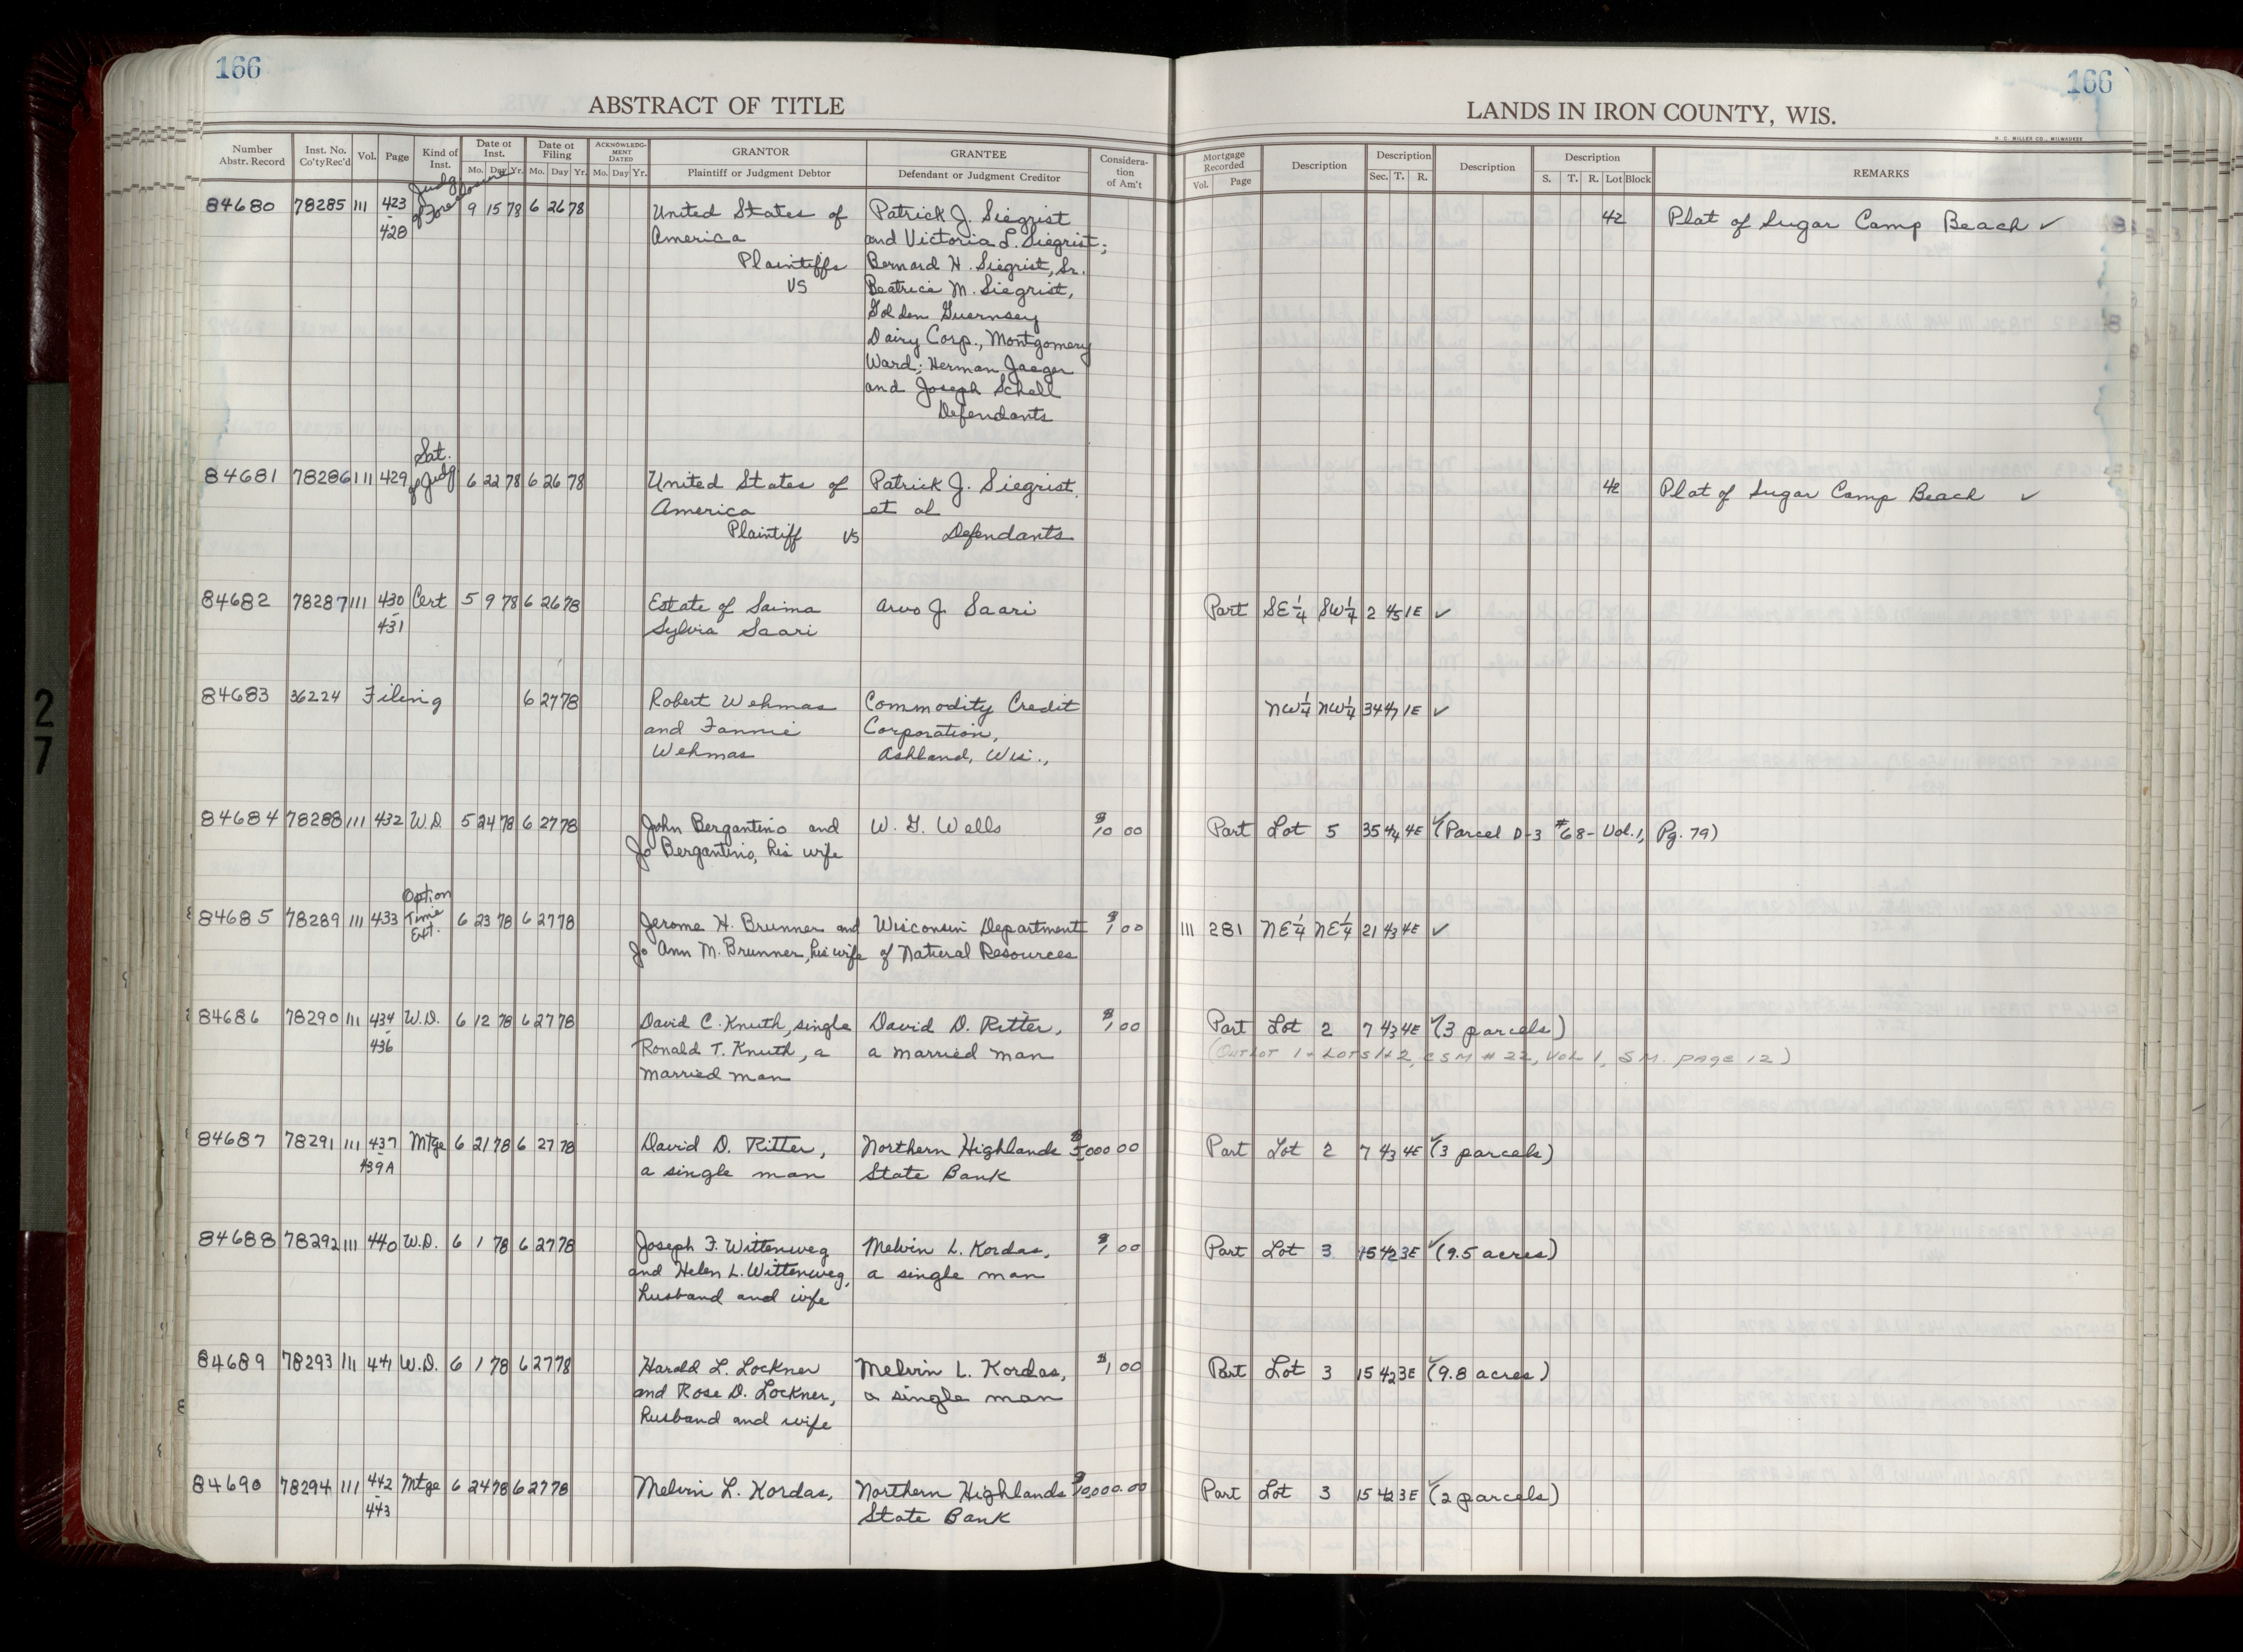 166
166
ABSTRACT OF TITLE
LANDS IN IRON COUNTY, WIS.
H. C. MILLER CO., MILWAUKEE
Number Abstr. Record
Inst. No. Co'tyRec'd
Vol.
Page
Kind of Inst.
Date of Inst. Mo. Day Yr.
Date of Filing Mo. Day Yr.
ACKNOWLEDGMENT DATED Mo. Day Yr.
GRANTOR Plaintiff or Judgment Debtor
GRANTEE Defendant or Judgment Creditor
Consideration of Am't
Mortgage Recorded Vol. Page
Description
Description Sec. T. R.
Description
Description S. T. R. Lot Block
REMARKS
84680 78285 111 423-428 Judg of Foreclosure 9 15 78 6 26 78 United States of Patrick J. Siegrist 42 Plat of Sugar Camp Beach ✓
America and Victoria L. Siegrist;
Plaintiffs Bernard H. Siegrist, Sr.
VS Beatrice M. Siegrist,
Golden Guernsey
Dairy Corp., Montgomery
Ward; Herman Jaeger
and Joseph Schell
Defendants
84681 78286 111 429 Sat. of Judg 6 22 78 6 26 78 United States of Patrick J. Siegrist 42 Plat of Sugar Camp Beach ✓
America et al
Plaintiff VS Defendants
84682 78287 111 430-431 Cert 5 9 78 6 26 78 Estate of Saima Arvo J. Saari Part SE¼ SW¼ 2 45 1E ✓
Sylvia Saari
84683 36224 Filing 6 27 78 Robert Wehmas Commodity Credit NW¼ NW¼ 34 47 1E ✓
and Fannie Corporation,
Wehmas Ashland, Wis.,
84684 78288 111 432 W.D. 5 24 78 6 27 78 John Bergantino and W. G. Wells $10 00 Part Lot 5 35 44 4E ✓ (Parcel D-3 #68- Vol. 1, Pg. 79)
Jo Bergantino, his wife
84685 78289 111 433 Option Time Ext. 6 23 78 6 27 78 Jerome H. Brunner and Wisconsin Department $1 00 111 281 NE¼ NE¼ 21 43 4E ✓
Jo Ann M. Brunner, his wife of Natural Resources
84686 78290 111 434-436 W.D. 6 12 78 6 27 78 David C. Knuth, single David D. Ritter, $1 00 Part Lot 2 7 43 4E ✓ (3 parcels)
Ronald T. Knuth, a a married man (OUTLOT 1 + LOTS 1+2, CSM # 22, VOL 1, SM. PAGE 12)
married man
84687 78291 111 437-439A Mtge 6 21 78 6 27 78 David D. Ritter, Northern Highlands $5,000 00 Part Lot 2 7 43 4E ✓ (3 parcels)
a single man State Bank
84688 78292 111 440 W.D. 6 1 78 6 27 78 Joseph F. Wittenweg Melvin L. Kordas, $1 00 Part Lot 3 15 42 3E ✓ (9.5 acres)
and Helen L. Wittenweg, a single man
husband and wife
84689 78293 111 441 W.D. 6 1 78 6 27 78 Harold L. Lockner Melvin L. Kordas, $1 00 Part Lot 3 15 42 3E ✓ (9.8 acres)
and Rose D. Lockner, a single man
husband and wife
84690 78294 111 442-443 Mtge 6 24 78 6 27 78 Melvin L. Kordas, Northern Highlands $10,000.00 Part Lot 3 15 42 3E ✓ (2 parcels)
State Bank
27